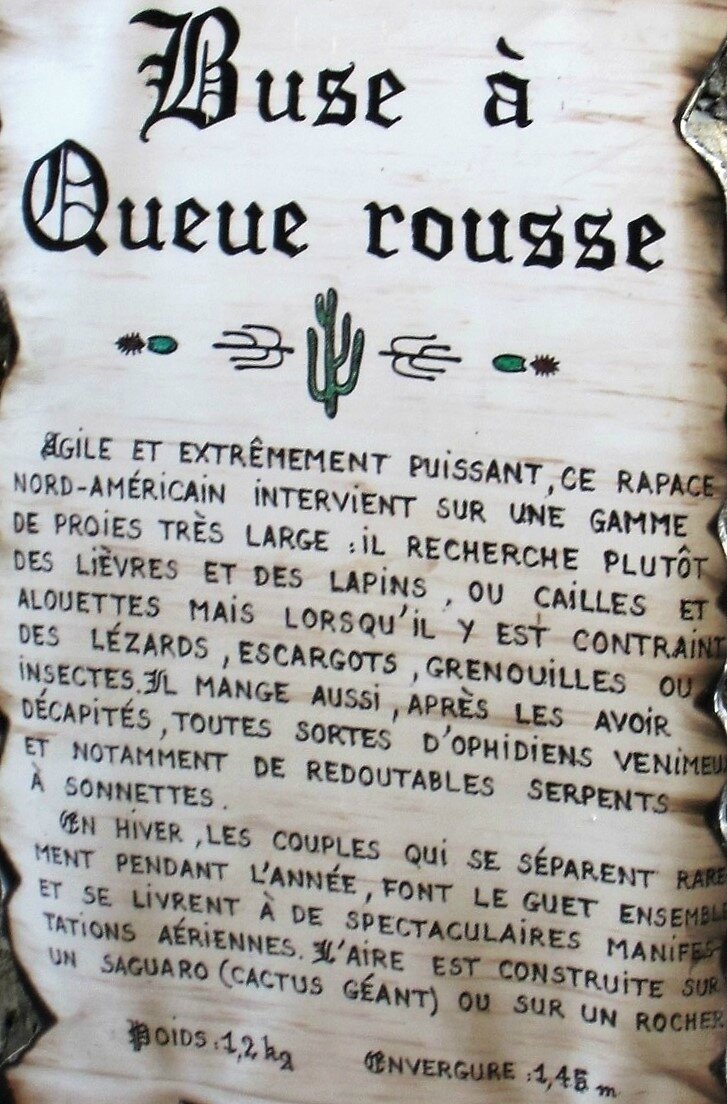 Buse à
Queue rousse
AGILE ET EXTRÊMEMENT PUISSANT, CE RAPACE
NORD-AMÉRICAIN INTERVIENT SUR UNE GAMME
DE PROIES TRÈS LARGE : IL RECHERCHE PLUTÔT
DES LIÈVRES ET DES LAPINS, OU CAILLES ET
ALOUETTES MAIS LORSQU'IL Y EST CONTRAINT
DES LÉZARDS, ESCARGOTS, GRENOUILLES OU
INSECTES. IL MANGE AUSSI, APRÈS LES AVOIR
DÉCAPITÉS, TOUTES SORTES D'OPHIDIENS VENIMEU
ET NOTAMMENT DE REDOUTABLES SERPENTS
À SONNETTES.
EN HIVER, LES COUPLES QUI SE SÉPARENT RARE
MENT PENDANT L'ANNÉE, FONT LE GUET ENSEMBL
ET SE LIVRENT À DE SPECTACULAIRES MANIFES
TATIONS AÉRIENNES. L'AIRE EST CONSTRUITE SUR
UN SAGUARO (CACTUS GÉANT) OU SUR UN ROCHER
POIDS : 1,2 kg ENVERGURE : 1,45 m